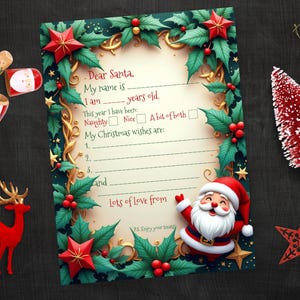 Dear Santa,
My name is ________
I am ______ years old.
This year I have been:
Naughty Nice A bit of both
My Christmas wishes are:
1.
2.
3.
and
Lots of love from
P.S. Enjoy your treats!